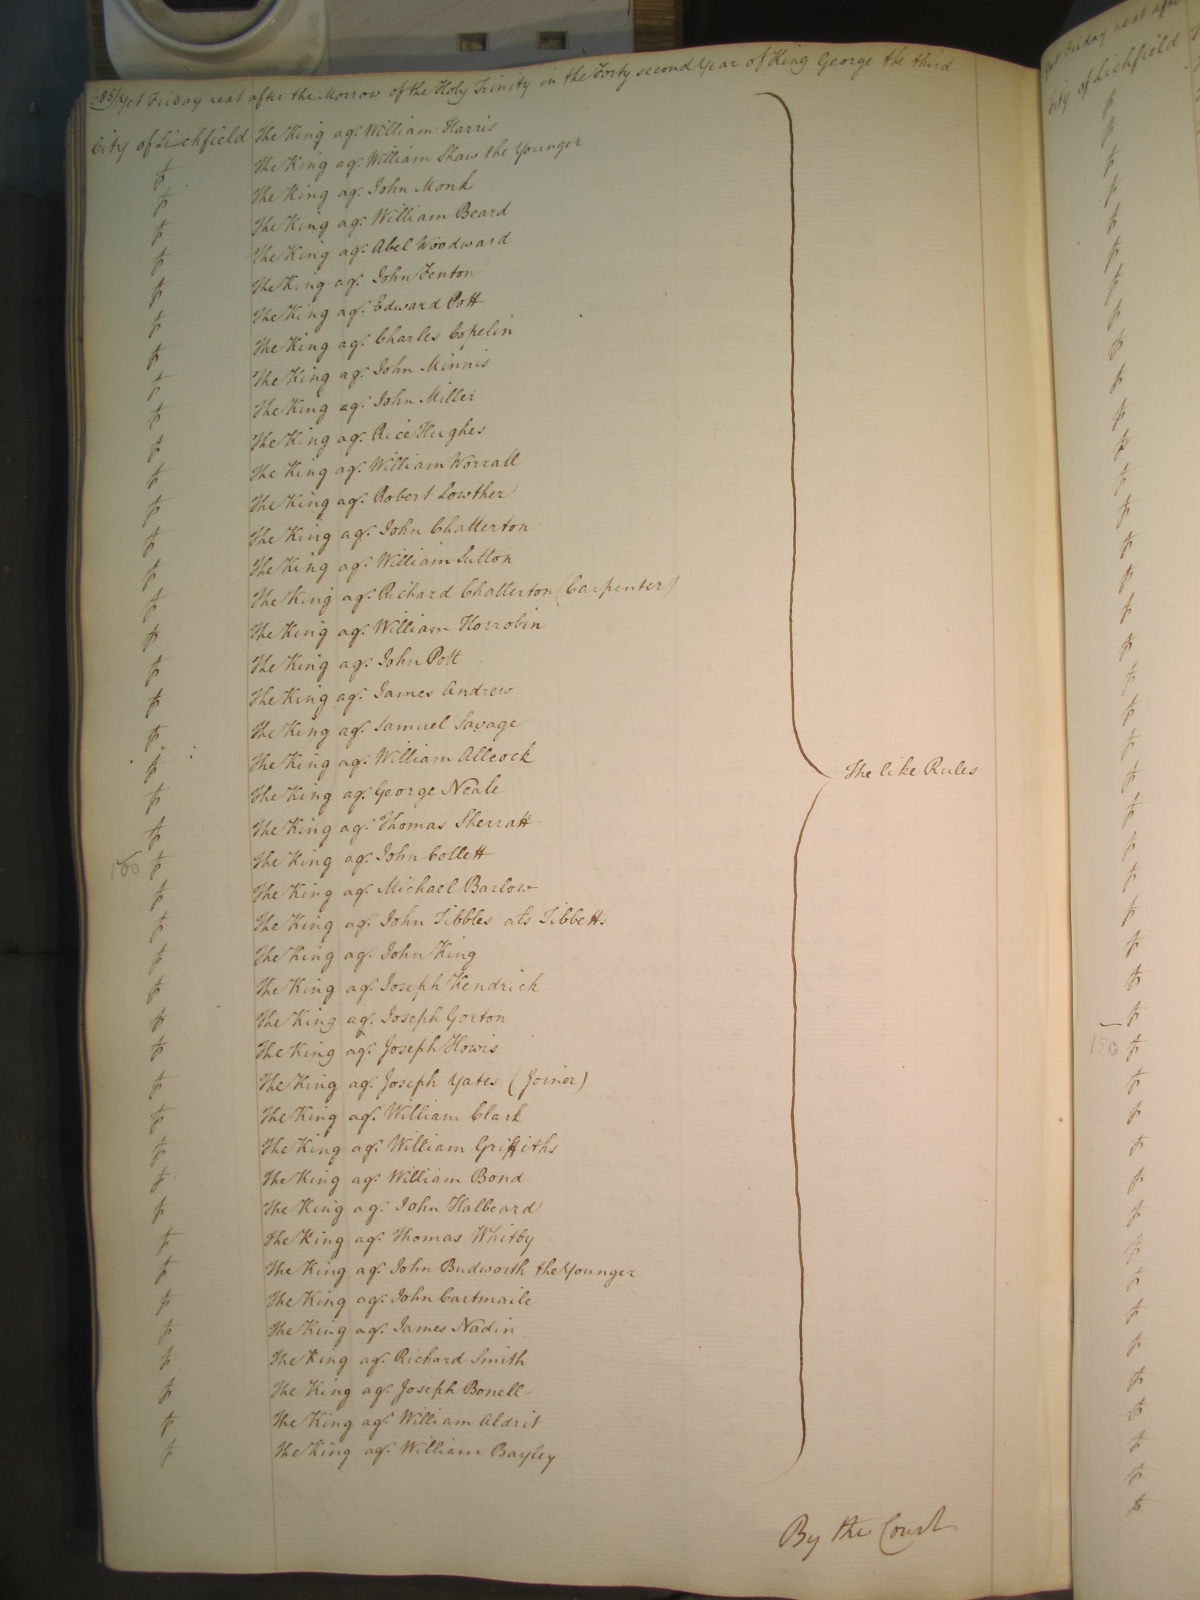 Yet Friday next after the Morrow of the Holy Trinity in the Forty second Year of King George the third
City of Lichfield The King agt. William Harris
The King agt. William Shaw the Younger
The King agt. John Monk
The King agt. William Beard
The King agt. Abel Woodward
The King agt. John Fenton
The King agt. Edward Pott
The King agt. Charles Copelin
The King agt. John Minnis
The King agt. John Miller
The King agt. Rice Hughes
The King agt. William Worrall
The King agt. Robert Lowther
The King agt. John Chatterton
The King agt. William Sutton
The King agt. Richard Chatterton (Carpenter)
The King agt. William Horrobin
The King agt. John Pott
The King agt. James Andrew
The King agt. Samuel Savage
The King agt. William Allcock
The King agt. George Neale
The like Rules
The King agt. Thomas Sherratt
150 The King agt. John Collett
The King agt. Michael Barlow
The King agt. John Tibbles als Tibbetts
The King agt. John King
The King agt. Joseph Kendrick
The King agt. Joseph Gorton
The King agt. Joseph Howis
The King agt. Joseph Yates (Joiner)
The King agt. William Clark
The King agt. William Griffiths
The King agt. William Bond
The King agt. John Halbeard
The King agt. Thomas Whitby
The King agt. John Budworth the Younger
The King agt. John Cartmaile
The King agt. James Nadin
The King agt. Richard Smith
The King agt. Joseph Bonell
The King agt. William Aldrit
The King agt. William Bayley
By the Court
Yet Friday next after
City of Lichfield
150